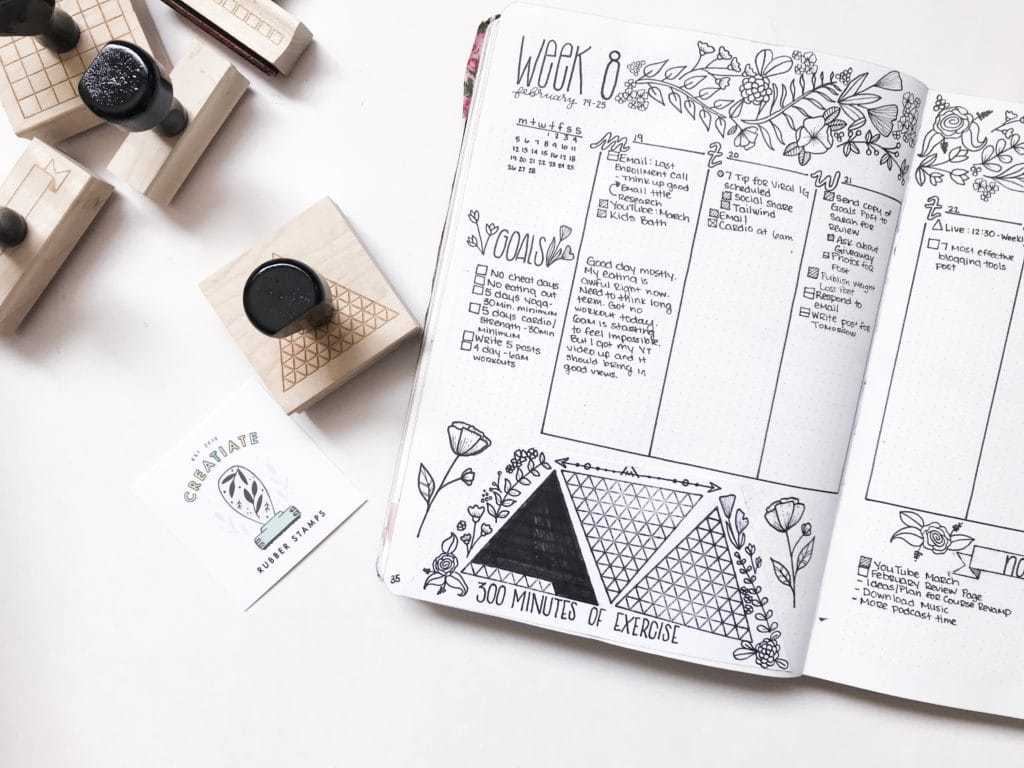 WEEK 8
february 19-25
m t w t f s s
1 2 3 4
5 6 7 8 9 10 11
12 13 14 15 16 17 18
19 20 21 22 23 24 25
26 27 28
GOALS
No cheat days
No eating out
5 days yoga-
30min. minimum
5 days cardio/
strength-30min
minimum
Write 5 posts
4 day-6am
workouts
M 19
Email: Last
Enrollment Call
- Think up good
Email title
Research
YouTube: March
Kids Bath
Good day mostly.
My eating is
awful right now.
Need to think long
term. Got no
workout today.
6am is starting
to feel impossible.
But I got my YT
video up and it
should bring in
good views.
T 20
7 Tip for Viral IG
scheduled
Social share
Tailwind
Email
Cardio at 6am
W 21
Send copy of
Goals Post to
Sarah for
Review
Ask about
Giveaway
Photos for
Post
Publish Weight
Loss Post
Respond to
email
Write post for
Tomorrow
300 MINUTES OF EXERCISE
35
T 22
Live: 12:30-Weekl
7 Most effective
blogging tools
post
no
YouTube March
February Review Page
- Ideas/Plan for Course Revamp
- Download Music
- More podcast time
EST. 2016
CREATIATE
RUBBER STAMPS